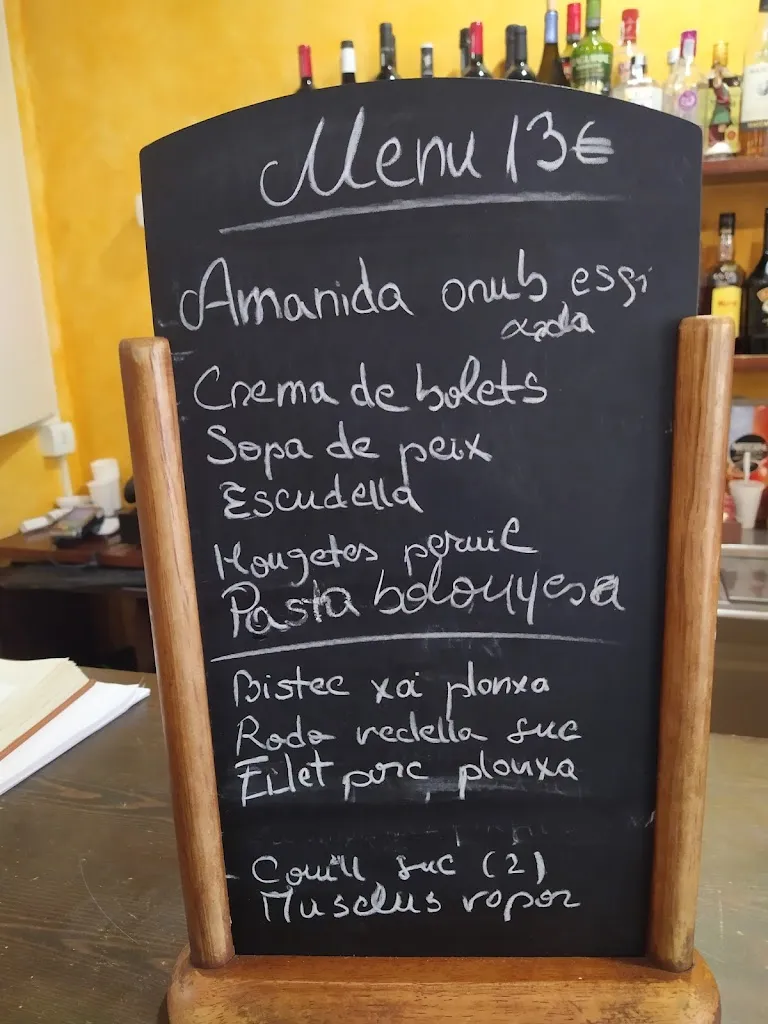 Menu 13€
Amanida amb esqei
xada
Crema de bolets
Sopa de peix
Escudella
Mougetes pernil
Pasta bolonyesa
Bistec xai planxa
Rodo vedella suc
Filet porc planxa
Conill suc (2)
Musclus vapor